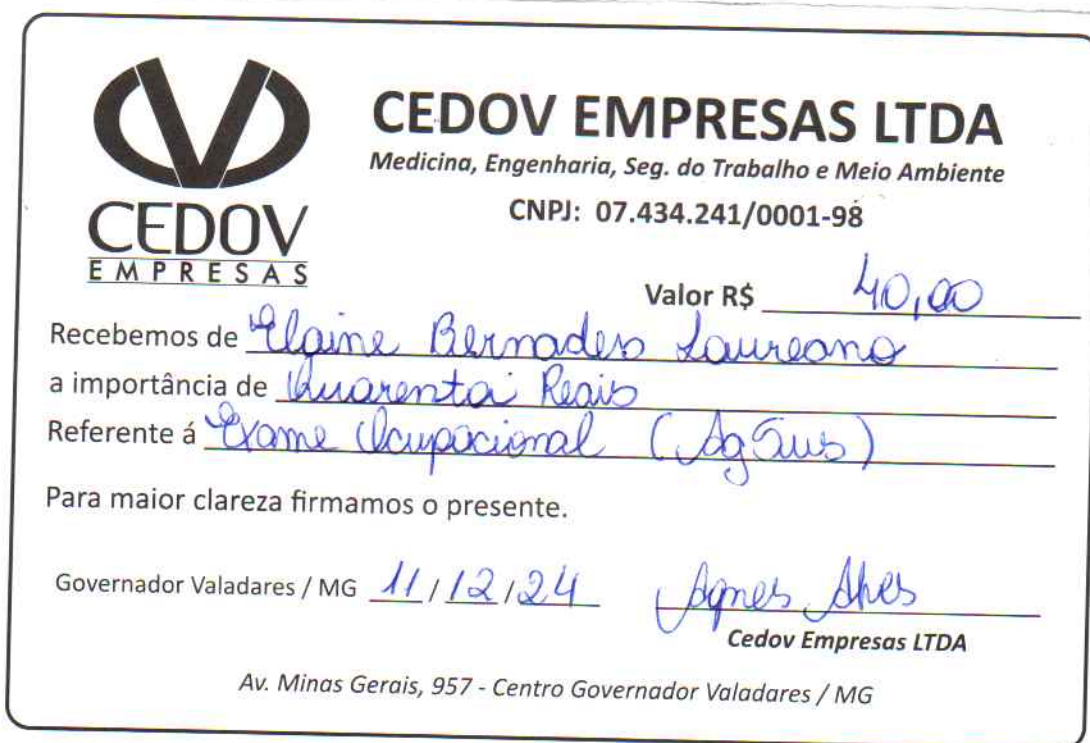 CEDOV EMPRESAS LTDA
Medicina, Engenharia, Seg. do Trabalho e Meio Ambiente
CNPJ: 07.434.241/0001-98
CEDOV
EMPRESAS
Valor R$ 40,00
Recebemos de Elaine Bernades Laureano
a importância de Quarenta Reais
Referente á Exame Ocupacional (AgSus)
Para maior clareza firmamos o presente.
Governador Valadares / MG 11/12/24 Agnes Alves
Cedov Empresas LTDA
Av. Minas Gerais, 957 - Centro Governador Valadares / MG